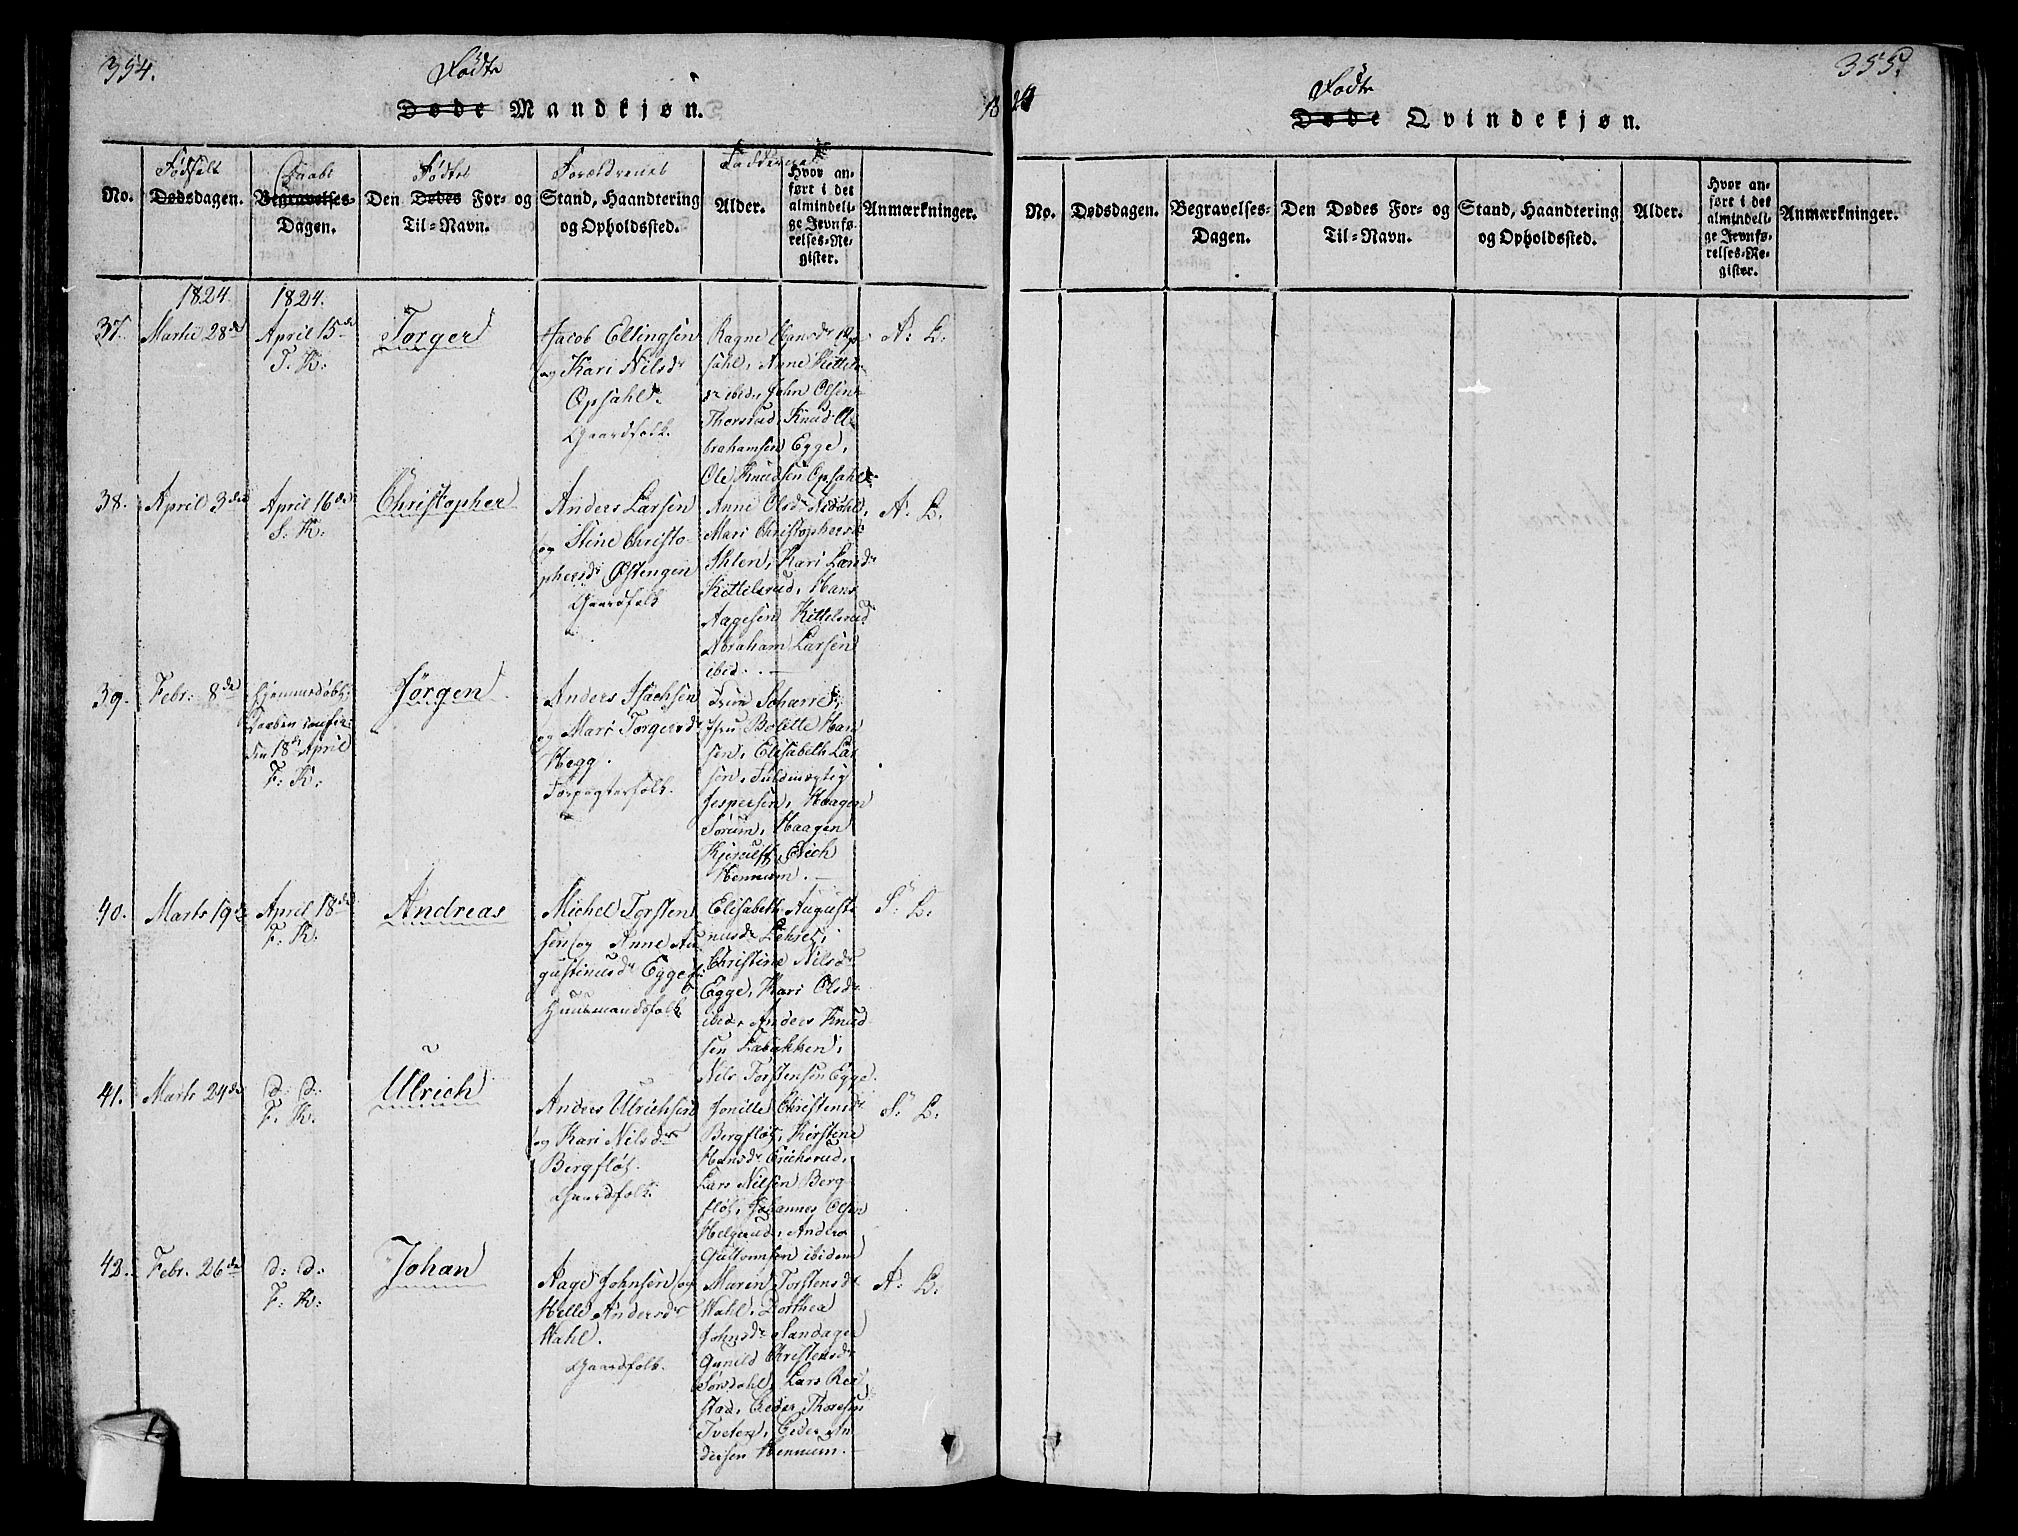 354.
Fødte
Døde Mandkjøn.
1824
No.
Fødsels
Dødsdagen.
Daabs
Begravelses-
Dagen.
Fødtes
Den Dødes For- og
Til-Navn.
Forældrenes
Stand, Haandtering
og Opholdssted.
Faddernes
Alder.
Hvor an-
ført i det
almindeli-
ge Jevnfø-
relses-Re-
gister.
Anmærkninger.
1824. 1824.
37. Martii 28de April 15de
T. K:
Torger
Jacob Ellingsen
og Kari Nilsdr
Opsahl.
Gaardfolk.
Ragne Hansdr Op-
sahl, Anne Kittels-
dr ibid, John Olsen
Thorsrud, Knud A-
brahamsen Egge,
Ole Knudsen Opsahl
A: L.
38. April 3die April 16de
S. K:
Christopher
Anders Larsen
og Stine Christo-
phersdr Østengen
Gaardfolk
Anne Olsdr
Mari Christophersdr
Ihlen, Kari Larsdr
Kittilsrud, Hans
Aagesen Kittelsrud
Abraham Larsen
ibid. —
A: L.
39. Febr: 8de Hjemmedøbt,
Daaben confir.
den 18de April
F: K:
Jørgen
Anders Isachsen
og Mari Torgersdr
Hegg.
Forpagterfolk.
Frue Scharre,
Jfru Bolette Han
sen, Elisabeth Lar
sen, Fuldmægtig
Jespersen, Haagen
Sørum, Haagen
Kjerulf, Erich
Hennum. —
40. Marts 19de April 18de
F. K.
Andreas
Michel Torsten
sen og Anne Au
gustinusdr Egge
Huusmandsfolk
Elisabeth Augusti
nusdr
Christine Nilsdr
Egge, Kari Olsdr
ibid, Anders Knud
sen Labakken,
Nils Torstensen Egge.
S: L.
41. Marts 24de d: d:
F. K:
Ulrich
Anders Ulrichsen
og Kari Nilsdr
Bergfløt.
Gaardfolk.
Jonille Christensdr
Bergfløt, Kirstene
Hansdr Erichsrud,
Lars Nilsen Berg
fløt, Johannes Olsen
Helgerud, Anders
Gulbransen ibidem
S: L.
42. Febr. 26de d: d:
F. K:
Johan
Aage Johnsen og
Helle Andersdr
Wahl.
Gaardfolk.
Maren Torstensdr
Wahl, Dorthea
Johnsdr Sandager
Gunild Christensdr
Sørsdahl, Lars Rer
stad, Peder Thoresen
Tveter, Peder An
dersen Hennum. —
A: L.
355.
Fødte
Døde Qvindekjøn.
No.
Dødsdagen.
Begravelses-
Dagen.
Den Dødes For- og
Til-Navn.
Stand, Haandtering
og Opholdssted.
Alder.
Hvor an-
ført i det
almindeli-
ge Jevnfø-
relses-Re-
gister.
Anmærkninger.